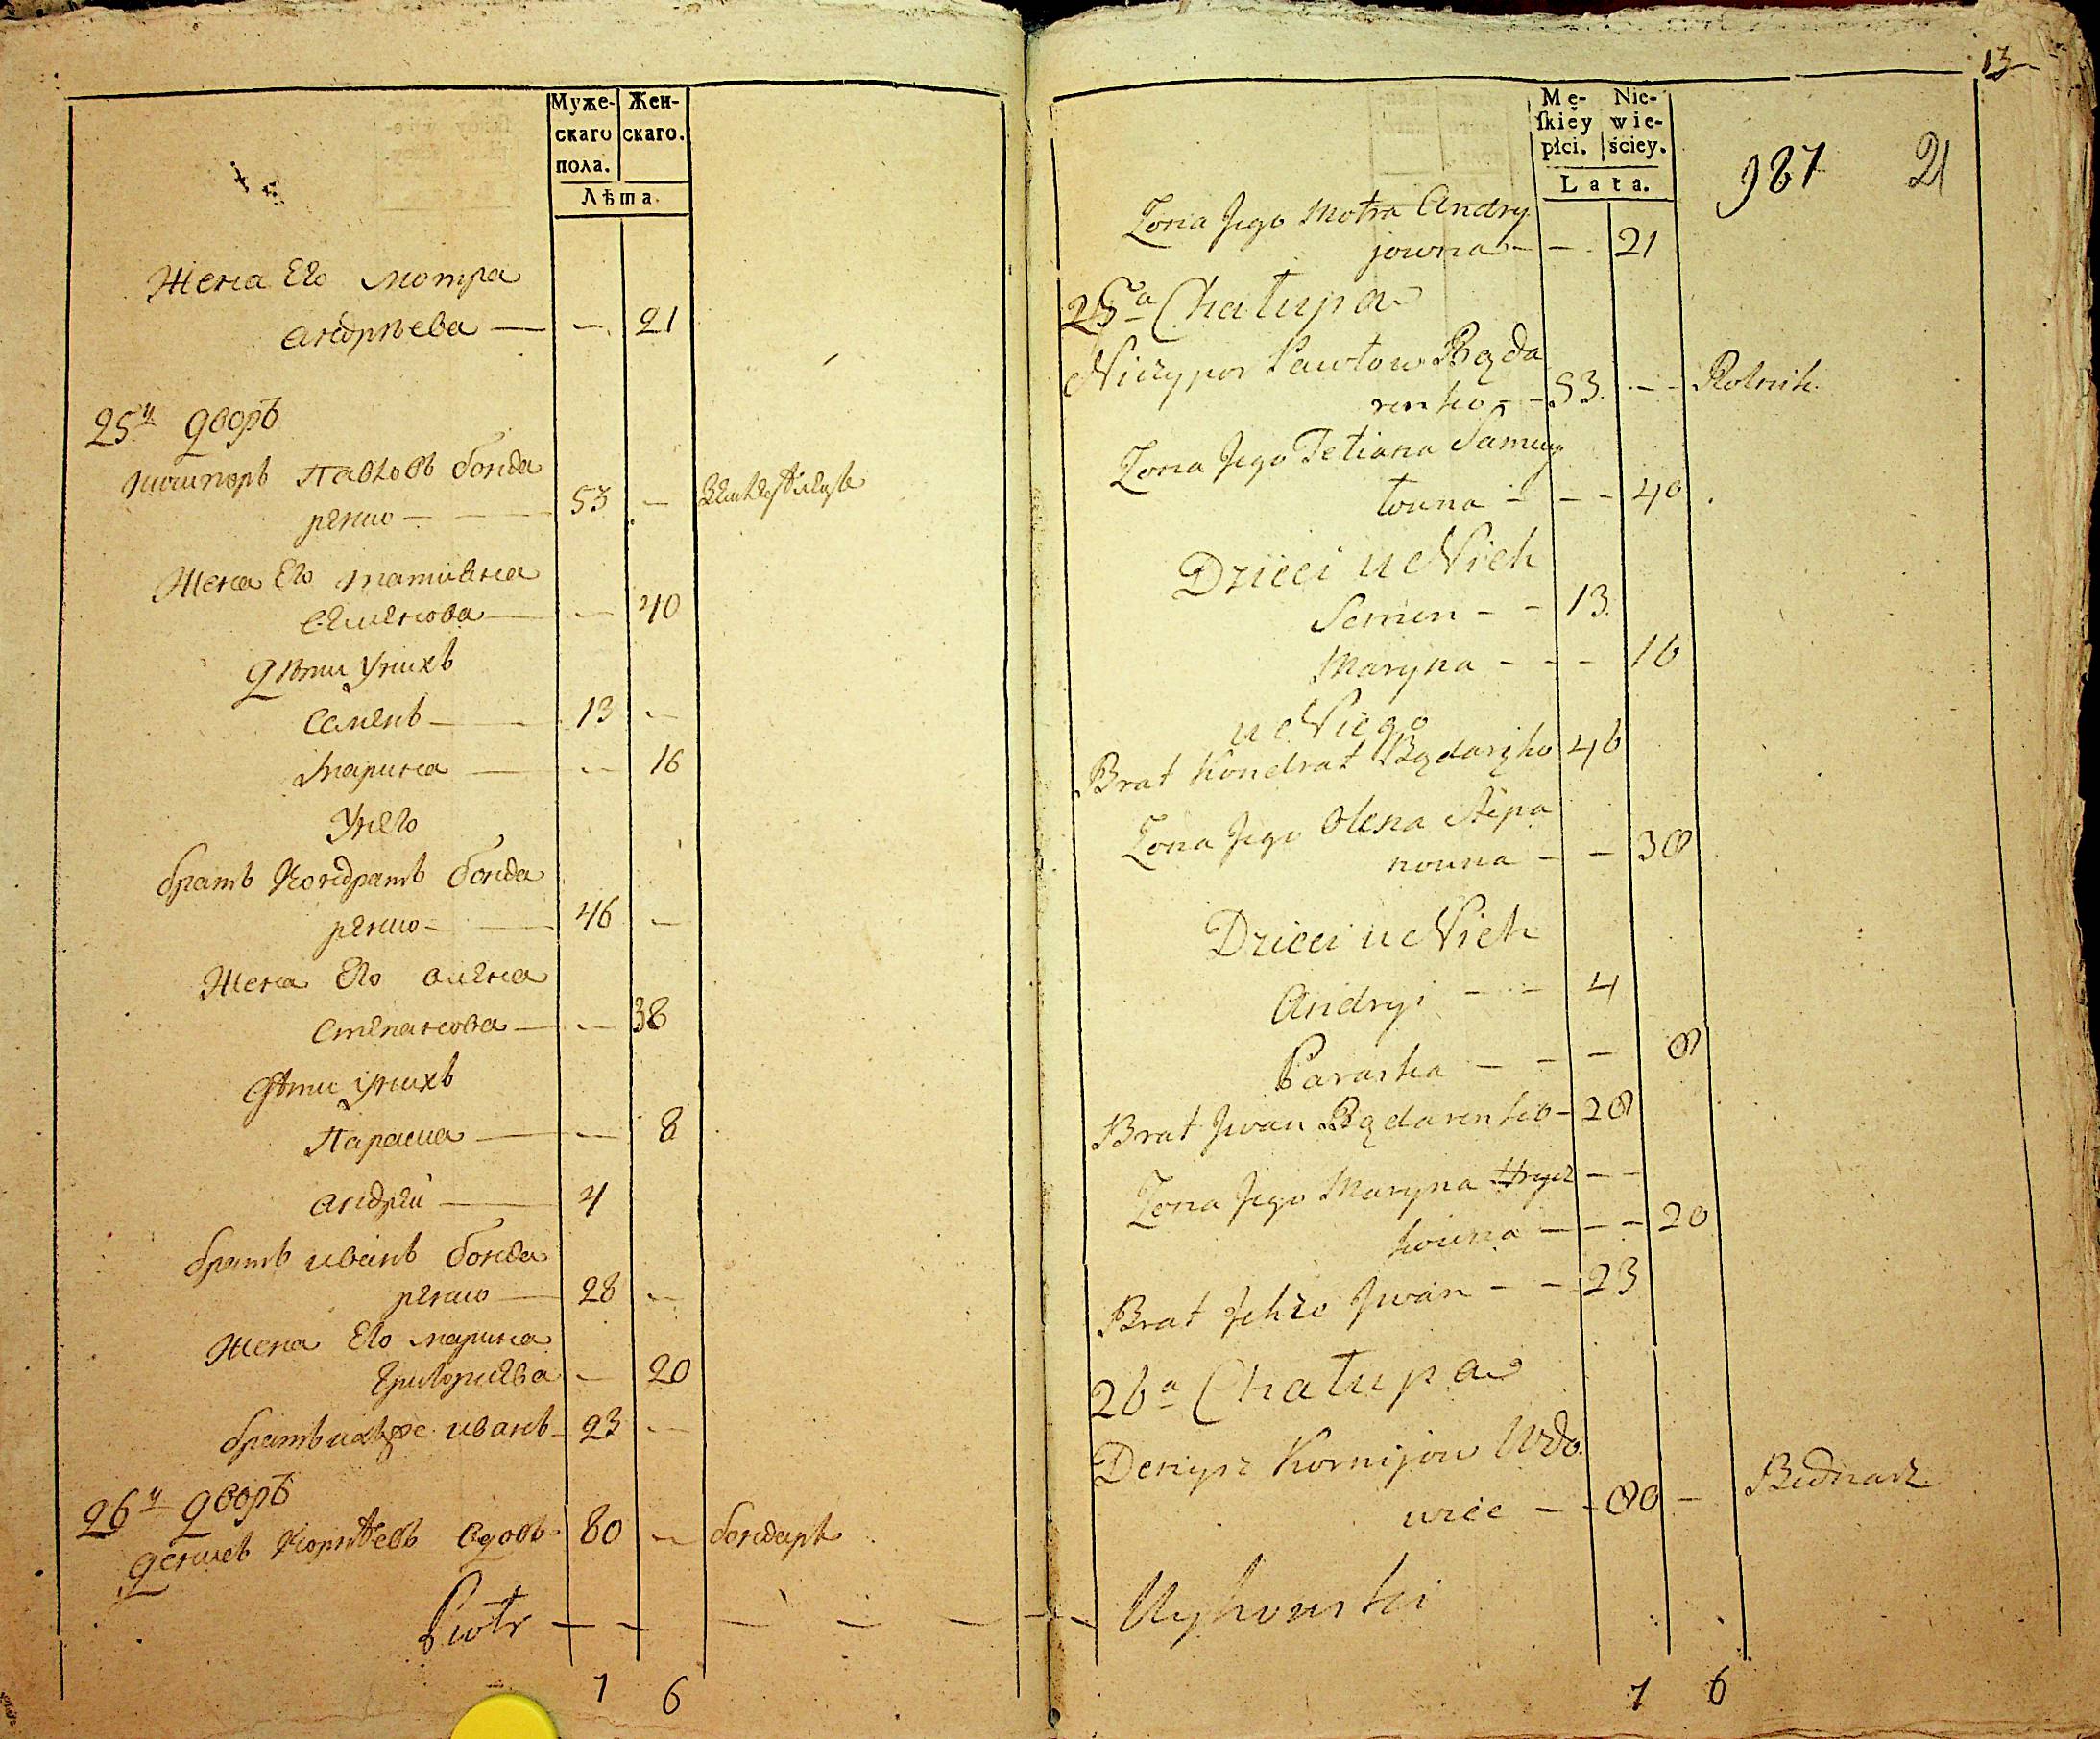 Муже-
скаго
пола.
Жен-
скаго.
Лѣта.
Жена Его Мотра
Андрѣева — — 21
25й дворъ
Ничипоръ Павловъ Бонда
ренко — 53 —
Земледѣлецъ
Жена Его Татиана
Семенова — — 40
Дѣти Унихъ
Семенъ — 13 —
Марина — — 16
Унего
братъ Кондратъ Бонда
ренко — 46 —
Жена Его Олена
Степанова — — 38
Дѣти Унихъ
Параска — — 8
Андрей — 4
братъ иванъ Бонда
ренко — 28 —
Жена Его Марина
Григориева — 20
братъ ихъже иванъ — 23 —
26й дворъ
Денисъ Корнѣевъ вдовъ 80 —
бондарь
Piotr — — — — — —
7 6
13
Mę-
skiey
płci.
Nie-
wie-
ściey.
Lata.
987 21
Żona Jego Motra Andry
jowna — — 21
25a Chałupa
Niczypor Pawłow Bąda
renko — 53. — Rolnik
Żona Jego Tetiana Samuy
łowna — — 40.
Dzieci u Nich
Semen — — 13.
Maryna — — — 16
u Niego
Brat Kondrat Bądaręko 46
Żona Jego Olena Stepa
nowna — — 38
Dzieci u Nich
Andryi — — 4
Paraska — — — 8
Brat Jwan Bądarenko — 28
Żona Jego Maryna Hrycz — —
kowna — — — 20
Brat Jchże Jwan — — 23
26a Chałupa
Denysz Kornijow Wdo.
wiec — — 80 — Bednarz.
7 6